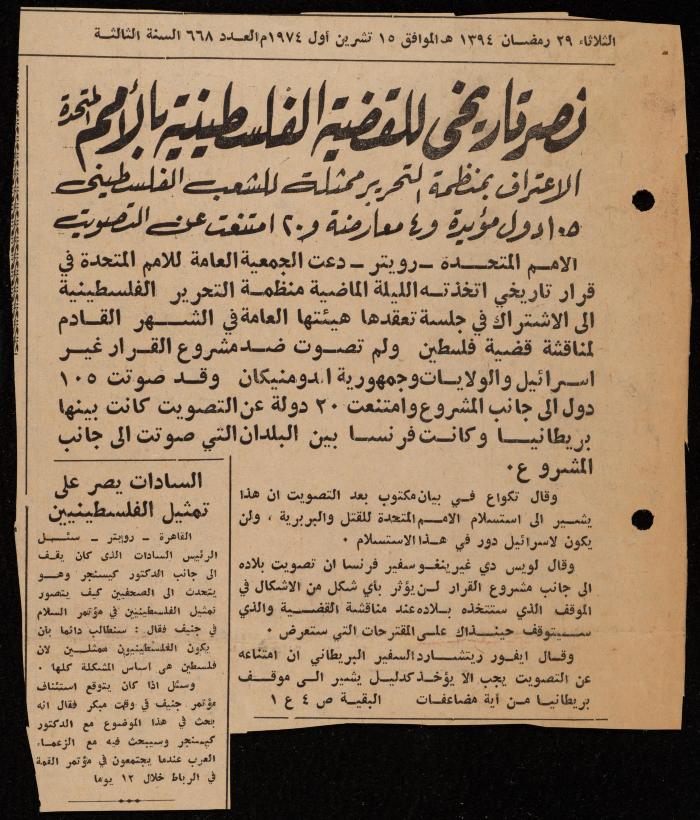 الثلاثاء ٢٩ رمضان ١٣٩٤ هـ الموافق ١٥ تشرين أول ١٩٧٤م العدد ٦٦٨ السنة الثالثة
نصر تاريخي للقضية الفلسطينية بالأمم المتحدة
الاعتراف بمنظمة التحرير ممثلة للشعب الفلسطيني
١٠٥ دول مؤيدة و٤ معارضة و٢٠ امتنعت عن التصويت
الامم المتحدة – رويتر – دعت الجمعية العامة للامم المتحدة في
قرار تاريخي اتخذته الليلة الماضية منظمة التحرير الفلسطينية
الى الاشتراك في جلسة تعقدها هيئتها العامة في الشهر القادم
لمناقشة قضية فلسطين ولم تصوت ضد مشروع القرار غير
اسرائيل والولايات وجمهورية الدومنيكان وقد صوتت ١٠٥
دول الى جانب المشروع وامتنعت ٢٠ دولة عن التصويت كانت بينها
بريطانيا وكانت فرنسا بين البلدان التي صوتت الى جانب
المشروع ٠
وقال تكواع في بيان مكتوب بعد التصويت ان هذا
يشير الى استسلام الامم المتحدة للقتل والبربرية ، ولن
يكون لاسرائيل دور في هذا الاستسلام ٠
وقال لويس دي غيرينغو سفير فرنسا ان تصويت بلاده
الى جانب مشروع القرار لن يؤثر بأي شكل من الاشكال في
الموقف الذي ستتخذه بلاده عند مناقشة القضية والذي
سيتوقف حينذاك على المقترحات التي ستعرض ٠
وقال ايفور ريتشارد السفير البريطاني ان امتناعه
عن التصويت يجب الا يؤخذ كدليل يشير الى موقف
بريطانيا من أية مضاعفات البقية ص ٤ ع ١
السادات يصر على
تمثيل الفلسطينيين
القاهرة – رويتر – سئل
الرئيس السادات الذى كان يقف
الى جانب الدكتور كيسنجر وهو
يتحدث الى الصحفيين كيف يتصور
تمثيل الفلسطينيين في مؤتمر السلام
في جنيف فقال : سنطالب دائما بأن
يكون الفلسطينيون ممثلين لان
فلسطين هى اساس المشكلة كلها ٠
وسئل اذا كان يتوقع استئناف
مؤتمر جنيف في وقت مبكر فقال انه
بحث في هذا الموضوع مع الدكتور
كيسنجر وسيبحث فيه مع الزعماء
العرب عندما يجتمعون في مؤتمر القمة
في الرباط خلال ١٢ يوما